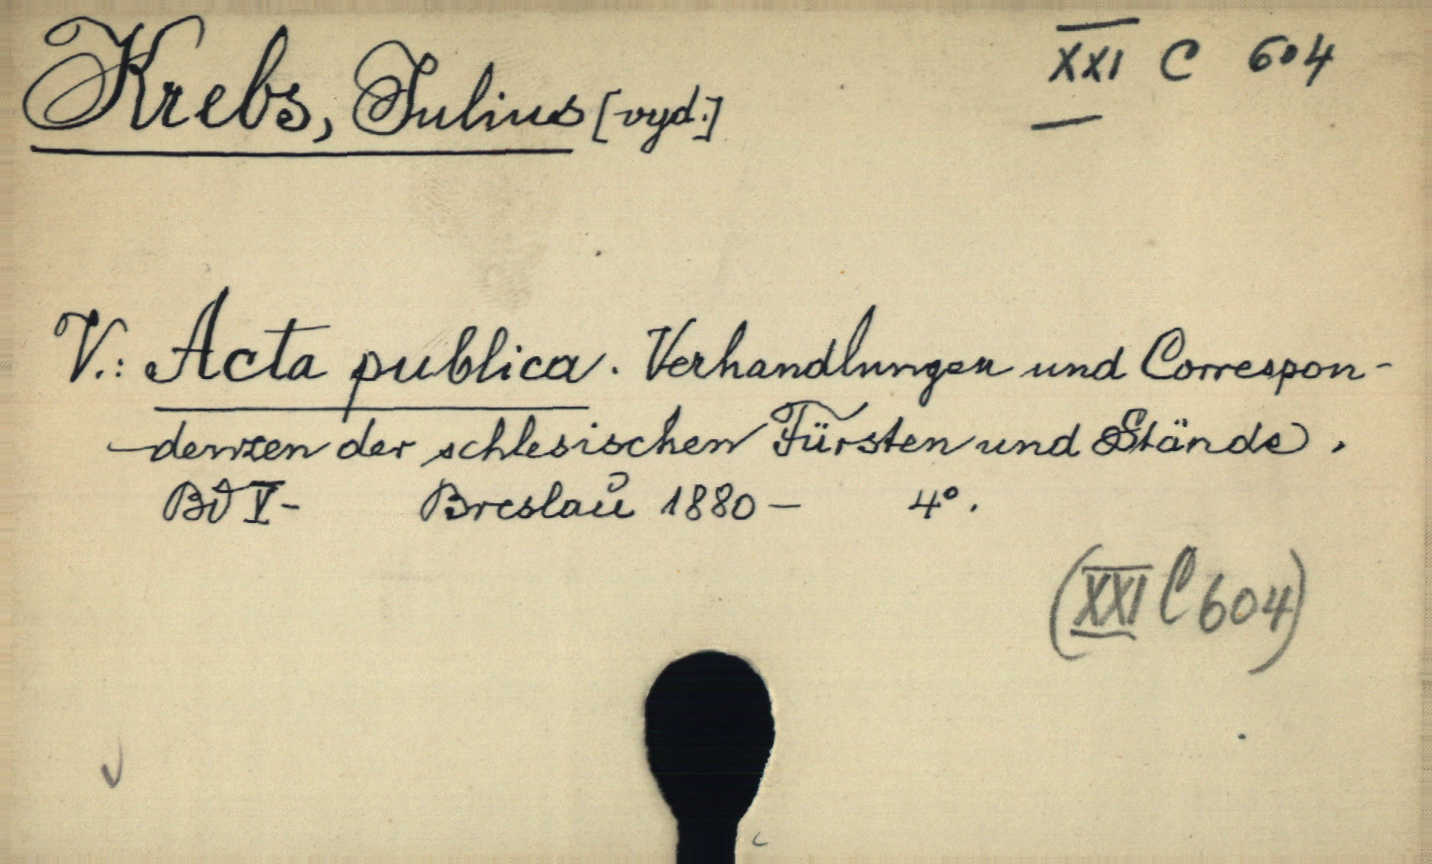 Krebs, Julius [vyd.]
XXI C 604
V.: Acta publica. Verhandlungen und Correspon-
denzen der schlesischen Fürsten und Stände.
Bd V- Breslau 1880- 4°.
(XXI C 604)